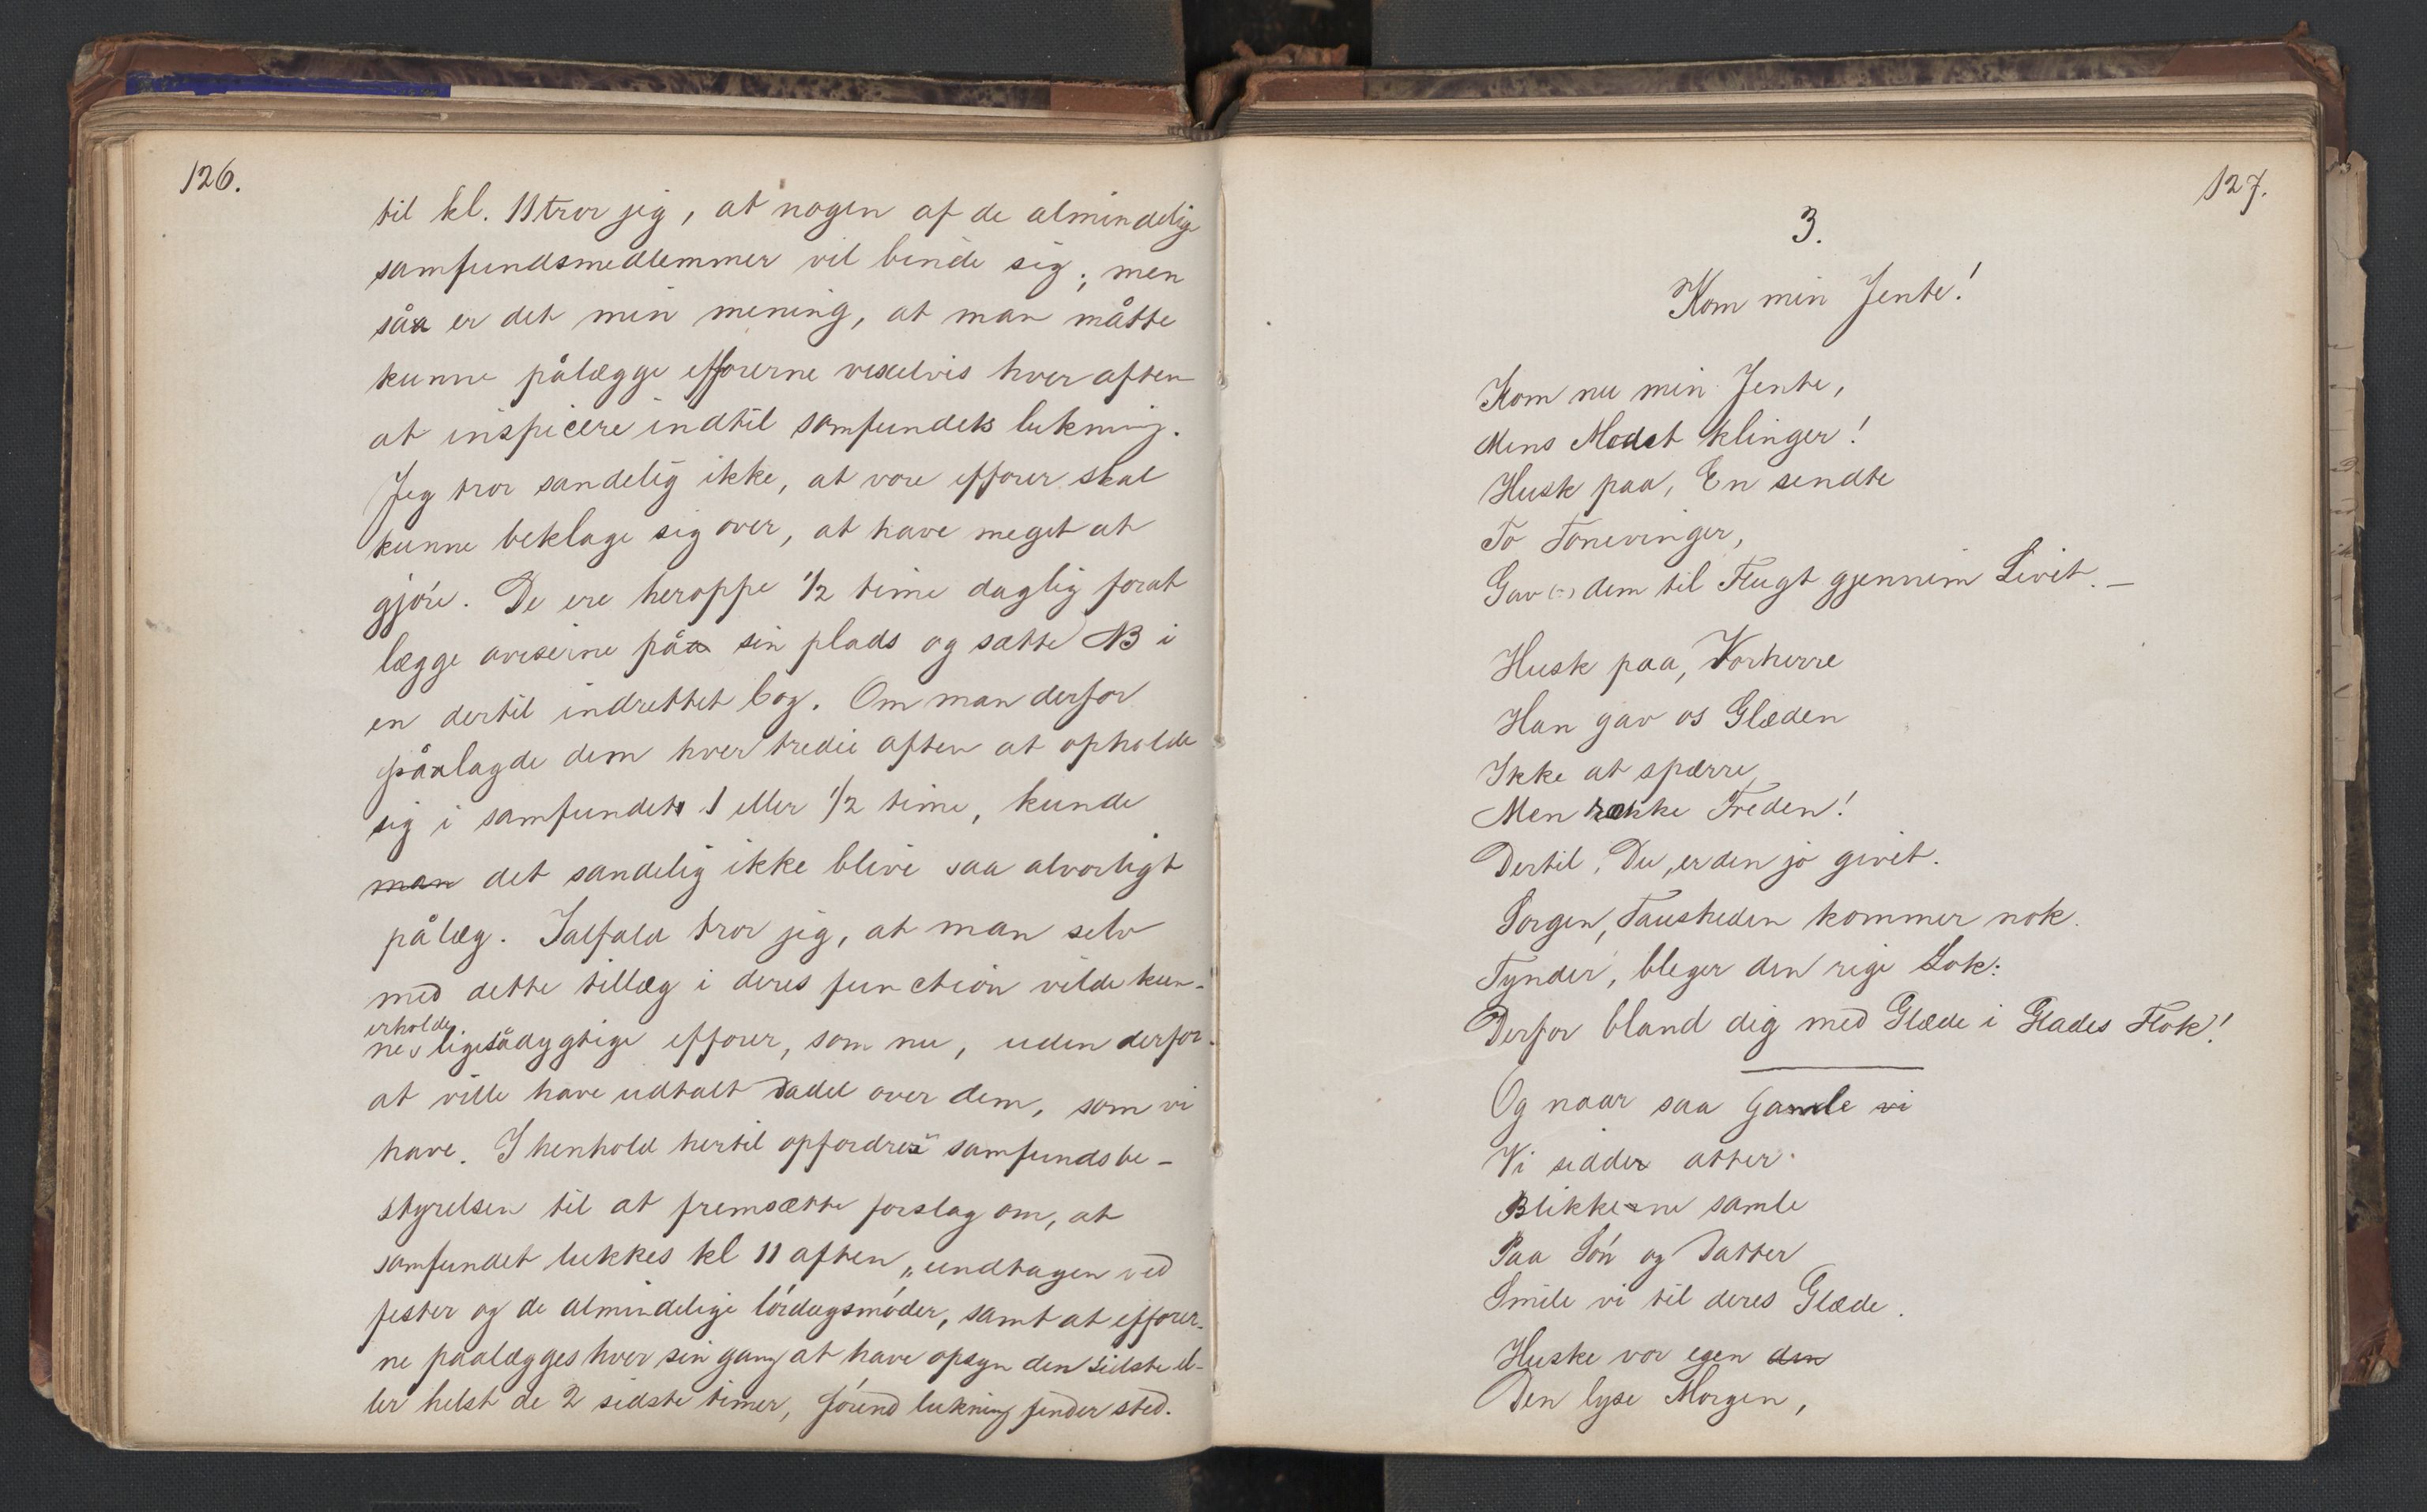 126.
til kl. 11 tror jeg, at nogen af de almindelige
samfundsmedlemmer vil binde sig; men
såa er det min mening, at man måtte
kunne pålægge efforerne vexelvis hver aften
at inspicere indtil samfundets lukning.
Jeg tror sandelig ikke, at vore efforer skal
kunne beklage sig over, at have meget at
gjóre. De ere heroppe 1/2 time daglig forat
lægge aviserne påa sin plads og sætte NB i
en dertil indrettet bog. Om man derfor
påalagde dem hver tredie aften at opholde
sig i samfundet 1 eller 1/2 time, kunde
man det sandelig ikke blive saa alvorligt
pålæg. Ialfald tror jeg, at man selv
med dette tillæg i deres function vilde kun-
erholde
ne ligesådygtige efforer, som nu, uden derfor
at ville have udtalt dadel over dem, som vi
have. I henhold hertil opfordres samfundsbe-
styrelsen til at fremsætte forslag om, at
samfundet lukkes kl 11 aften „undtagen ved
fester og de almindelige lórdagsmóder, samt at efforer-
ne paalægges hver sin gang at have opsyn den sidste el-
ler helst de 2 sidste timer, fórend lukning finder sted.
127.
3.
Kom min Jente!
Kom nu min Jente,
Mens Modet klinger!
Husk paa, En sendte
To Tonevinger,
Gav (-) dem til Flugt gjennem Livet. –
Husk paa, Vorherre
Han gav os Glæden
Ikke at spærre,
Men række Freden!
Dertil, Du, er den jo givet.
Sorgen, Tausheden kommer nok.
Tynder, bleger den rige Lok:
Derfor bland dig med Glæde i Glades Flok!
Og naar saa Gamle vi
Vi sidder atter
Blikkene samle
Paa Són og Datter
Smile vi til deres Glæde.
Huske vor egen den
Den lyse Morgen,